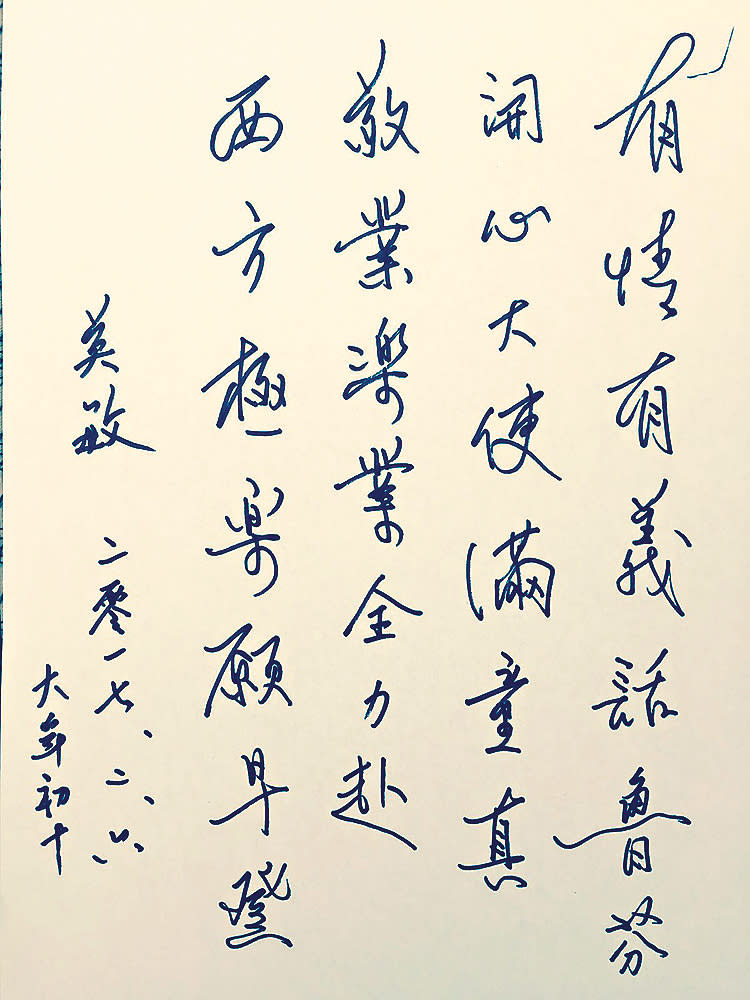 有情有義話魯芬
開心大使滿童真
敬業樂業全力赴
西方極樂願早登
英敏 二零一七、二、六
大年初十